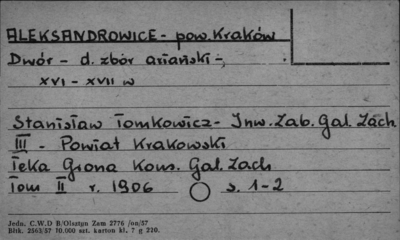 ALEKSANDROWICE - pow. Kraków
Dwór - d. zbór ariański -,
XVI - XVII w
Stanisław Tomkowicz - Inw. Zab. Gal. Zach
III - Powiat Krakowski
Teka Grona Kons. Gal. Zach
Tom II r. 1906 s. 1-2
Jedn. C.W.D B/Olsztyn Zam 2776 /nn/57
Bltk. 2563/57 70.000 szt. karton kl. 7 g 220.